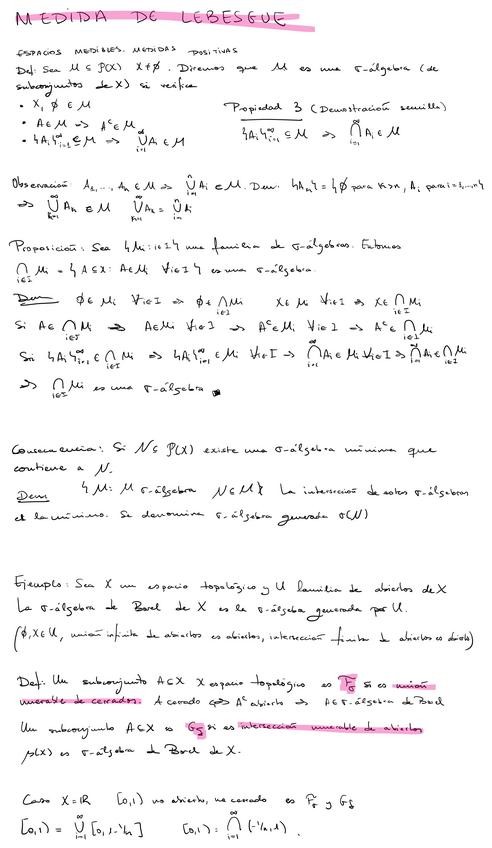 MEDIDA DE LEBESGUE
ESPACIOS MEDIBLES. MEDIDAS POSITIVAS
Def: Sea M ⊆ P(X) X≠∅. Diremos que M es una σ-álgebra (de
subconjuntos de X) si verifica
• X, ∅ ∈ M
• A∈M ⇒ Aᶜ∈M
• {Ai}_{i=1}^∞ ⊆ M ⇒ ⋃_{i=1}^∞ Ai ∈ M
Propiedad 3 (Demostración sencilla)
{Ai}_{i=1}^∞ ⊆ M ⇒ ⋂_{i=1}^∞ Ai ∈ M
Observación: A1,..., An ∈ M ⇒ ⋃_{i=1}^n Ai ∈ M. Dem: {Ak} = {∅ para k>n, Ai para i=1,...,n}
⇒ ⋃_{k=1}^∞ Ak ∈ M ⋃_{k=1}^∞ Ak = ⋃_{i=1}^n Ai
Proposición: Sea {Mi : i∈I} una familia de σ-álgebras. Entonces
⋂_{i∈I} Mi = {A⊆X : A∈Mi ∀i∈I} es una σ-álgebra.
Dem ∅∈Mi ∀i∈I ⇒ ∅∈⋂_{i∈I} Mi X∈Mi ∀i∈I ⇒ X∈⋂_{i∈I} Mi
Si A∈⋂_{i∈I} Mi ⇒ A∈Mi ∀i∈I ⇒ Aᶜ∈Mi ∀i∈I ⇒ Aᶜ∈⋂_{i∈I} Mi
Si {Ai}_{i=1}^∞ ∈ ⋂_{i∈I} Mi ⇒ {Ai}_{i=1}^∞ ∈ Mi ∀i∈I ⇒ ⋂_{i=1}^∞ Ai ∈ Mi ∀i∈I ⇒ ⋂_{i=1}^∞ Ai ∈ ⋂_{i∈I} Mi
⇒ ⋂_{i∈I} Mi es una σ-álgebra
Consecuencia: Si N⊆P(X) existe una σ-álgebra mínima que
contiene a N.
Dem {M: M σ-álgebra N⊆M} La intersección de estas σ-álgebras
es la mínima. Se denomina σ-álgebra generada σ(N)
Ejemplo: Sea X un espacio topológico y U familia de abiertos de X
La σ-álgebra de Borel de X es la σ-álgebra generada por U.
(∅,X∈U, unión infinita de abiertos es abiertos, intersección finita de abiertos es abierto)
Def: Un subconjunto A⊆X X espacio topológico es Fσ si es unión
numerable de cerrados. A cerrado ⇔ Aᶜ abierto ⇒ A∈σ-álgebra de Borel
Un subconjunto A⊆X es Gδ si es intersección numerable de abiertos
β(X) es σ-álgebra de Borel de X.
Caso X=ℝ [0,1) no abierto, no cerrado es Fσ y Gδ
[0,1) = ⋃_{i=1}^∞ [0,1-1/n] [0,1) = ⋂_{i=1}^∞ (-1/n,1).